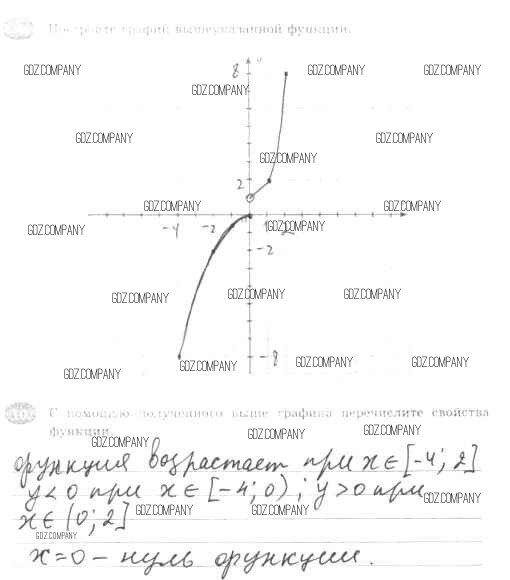 Постройте график вышеуказанной функции.
8
GDZ.COMPANY GDZ.COMPANY GDZ.COMPANY
GDZ.COMPANY
GDZ.COMPANY GDZ.COMPANY
GDZ.COMPANY
2
GDZ.COMPANY GDZ.COMPANY
-4 -2 1 2
GDZ.COMPANY GDZ.COMPANY
-2
GDZ.COMPANY GDZ.COMPANY GDZ.COMPANY
-8
GDZ.COMPANY GDZ.COMPANY GDZ.COMPANY
GDZ.COMPANY
С помощью полученного выше графика перечислите свойства
функции.
GDZ.COMPANY GDZ.COMPANY GDZ.COMPANY
функция возрастает при x∈[-4; 2]
y<0 при x∈[-4; 0); y>0 при
GDZ.COMPANY
x∈(0; 2]
GDZ.COMPANY GDZ.COMPANY
GDZ.COMPANY
x=0 – нуль функции.